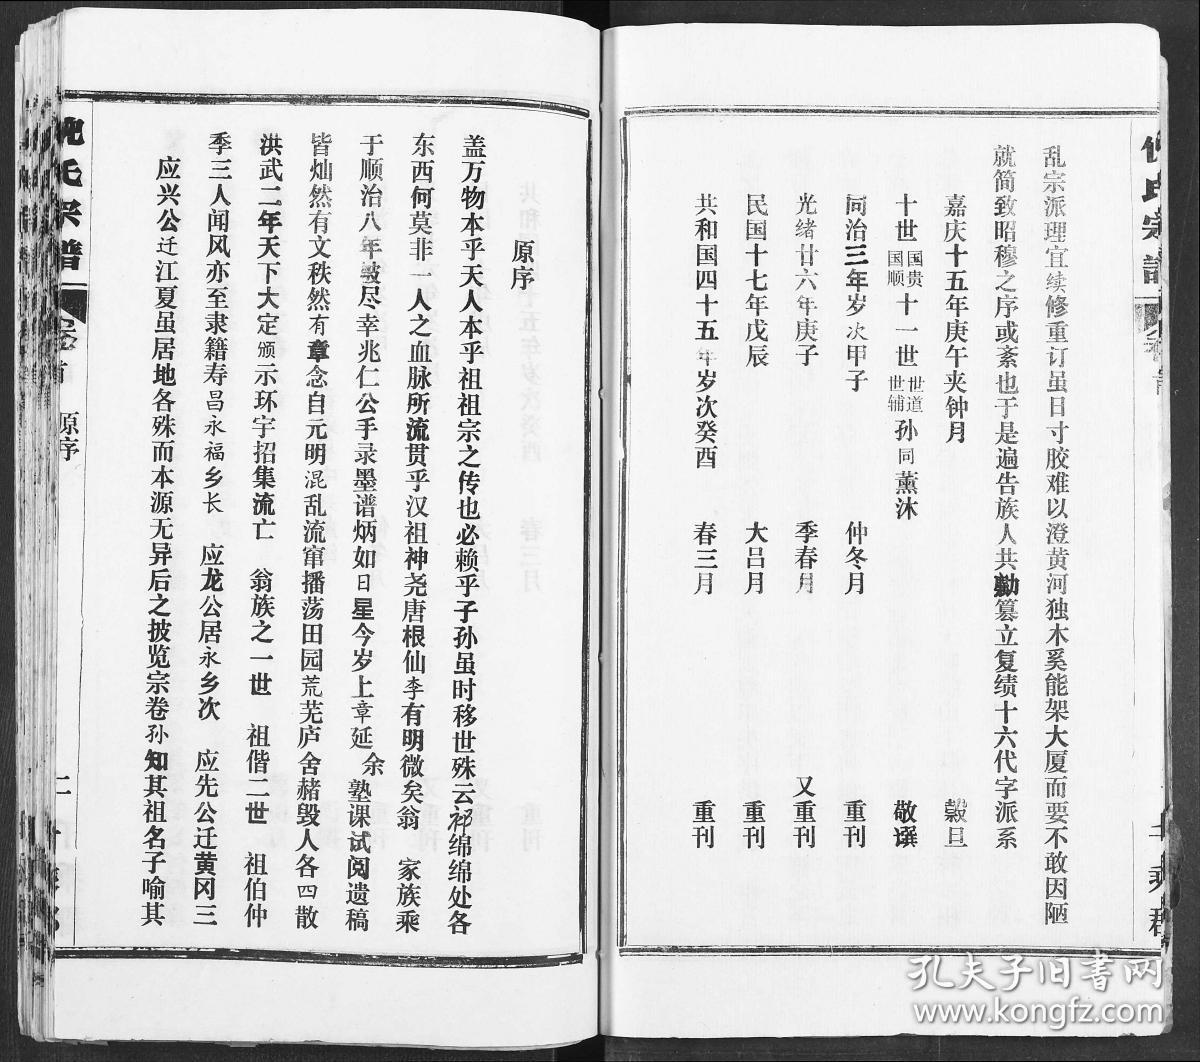 乱宗派理宜续修重订虽日寸胶难以澄黄河独木奚能架大厦而要不敢因陋
就简致昭穆之序或紊也于是遍告族人共勷篡立复绩十六代字派系
嘉庆十五年庚午夹钟月 穀旦
十世国贵国顺十一世世道世辅孙同薰沐 敬譔
同治三年岁次甲子 仲冬月 重刊
光绪廿六年庚子 季春月 又重刊
民国十七年戊辰 大吕月 重刊
共和国四十五年岁次癸酉 春三月 重刊
原序
盖万物本乎天人本乎祖祖宗之传也必赖乎子孙虽时移世殊云祁绵绵处各
东西何莫非一人之血脉所流贯乎汉祖神尧唐根仙李有明微矣翁 家族乘
于顺治八年毁尽幸兆仁公手录墨谱炳如日星今岁上章延 余 塾课试阅遗稿
皆灿然有文秩然有章念自元明混乱流窜播荡田园荒芜庐舍赭毁人各四散
洪武二年天下大定颁示环宇招集流亡 翁族之一世 祖偕二世 祖伯仲
季三人闻风亦至隶籍寿昌永福乡长 应龙公居永乡次 应先公迁黄冈三
应兴公迁江夏虽居地各殊而本源无异后之披览宗卷孙知其祖名子喻其
氏宗谱
原序
二
孔夫子旧书网
www.kongfz.com